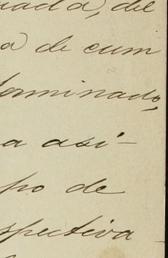 uada, del
a de cum
terminado,
a así-
po de
spectiva